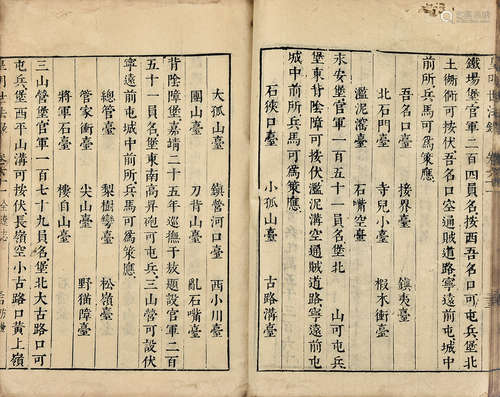 鐵場堡官軍二百四員名按西吾名口可屯兵堡北
土衚衕可按伏吾名口空通賊道路寧遠前屯城中
前所兵馬可為策應
吾名口臺 接界臺 鎮夷臺
北石門臺 寺兒小臺 椵木衝臺
濫泥窰臺 石嘴空臺
永安堡官軍一百五十一員名堡北 山可屯兵
堡東背陰障堡可按伏濫泥溝空通賊道路寧遠前屯
城中前所兵馬可為策應
石𡎺口臺 小孤山臺 古路溝臺
大孤山臺 鎮營河口臺 西小川臺
團山臺 刀背山臺 亂石嘴臺
背陰障堡嘉靖二十五年巡撫于敖題設官軍二百
五十一員名堡東南高昇砲可屯兵三山營可設伏
寧遠前屯城中前所兵馬可為策應
總管臺 梨樹彎臺 松嶺臺
管家衝臺 尖山臺 野猫障臺
將軍石臺 接自山臺
三山營堡官軍一百七十九員名堡北大古路口可
屯兵堡西平山溝可按伏長嶺空小古路口黃上嶺
皇明世法錄